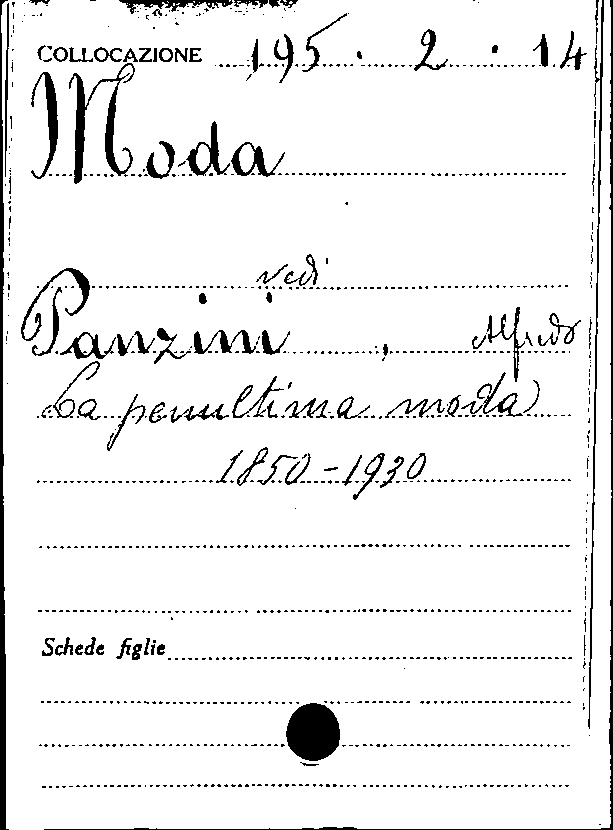 COLLOCAZIONE 195 · 2 · 14
Moda
vedi
Panzini, Alfredo
La penultima moda
1850-1930
Schede figlie